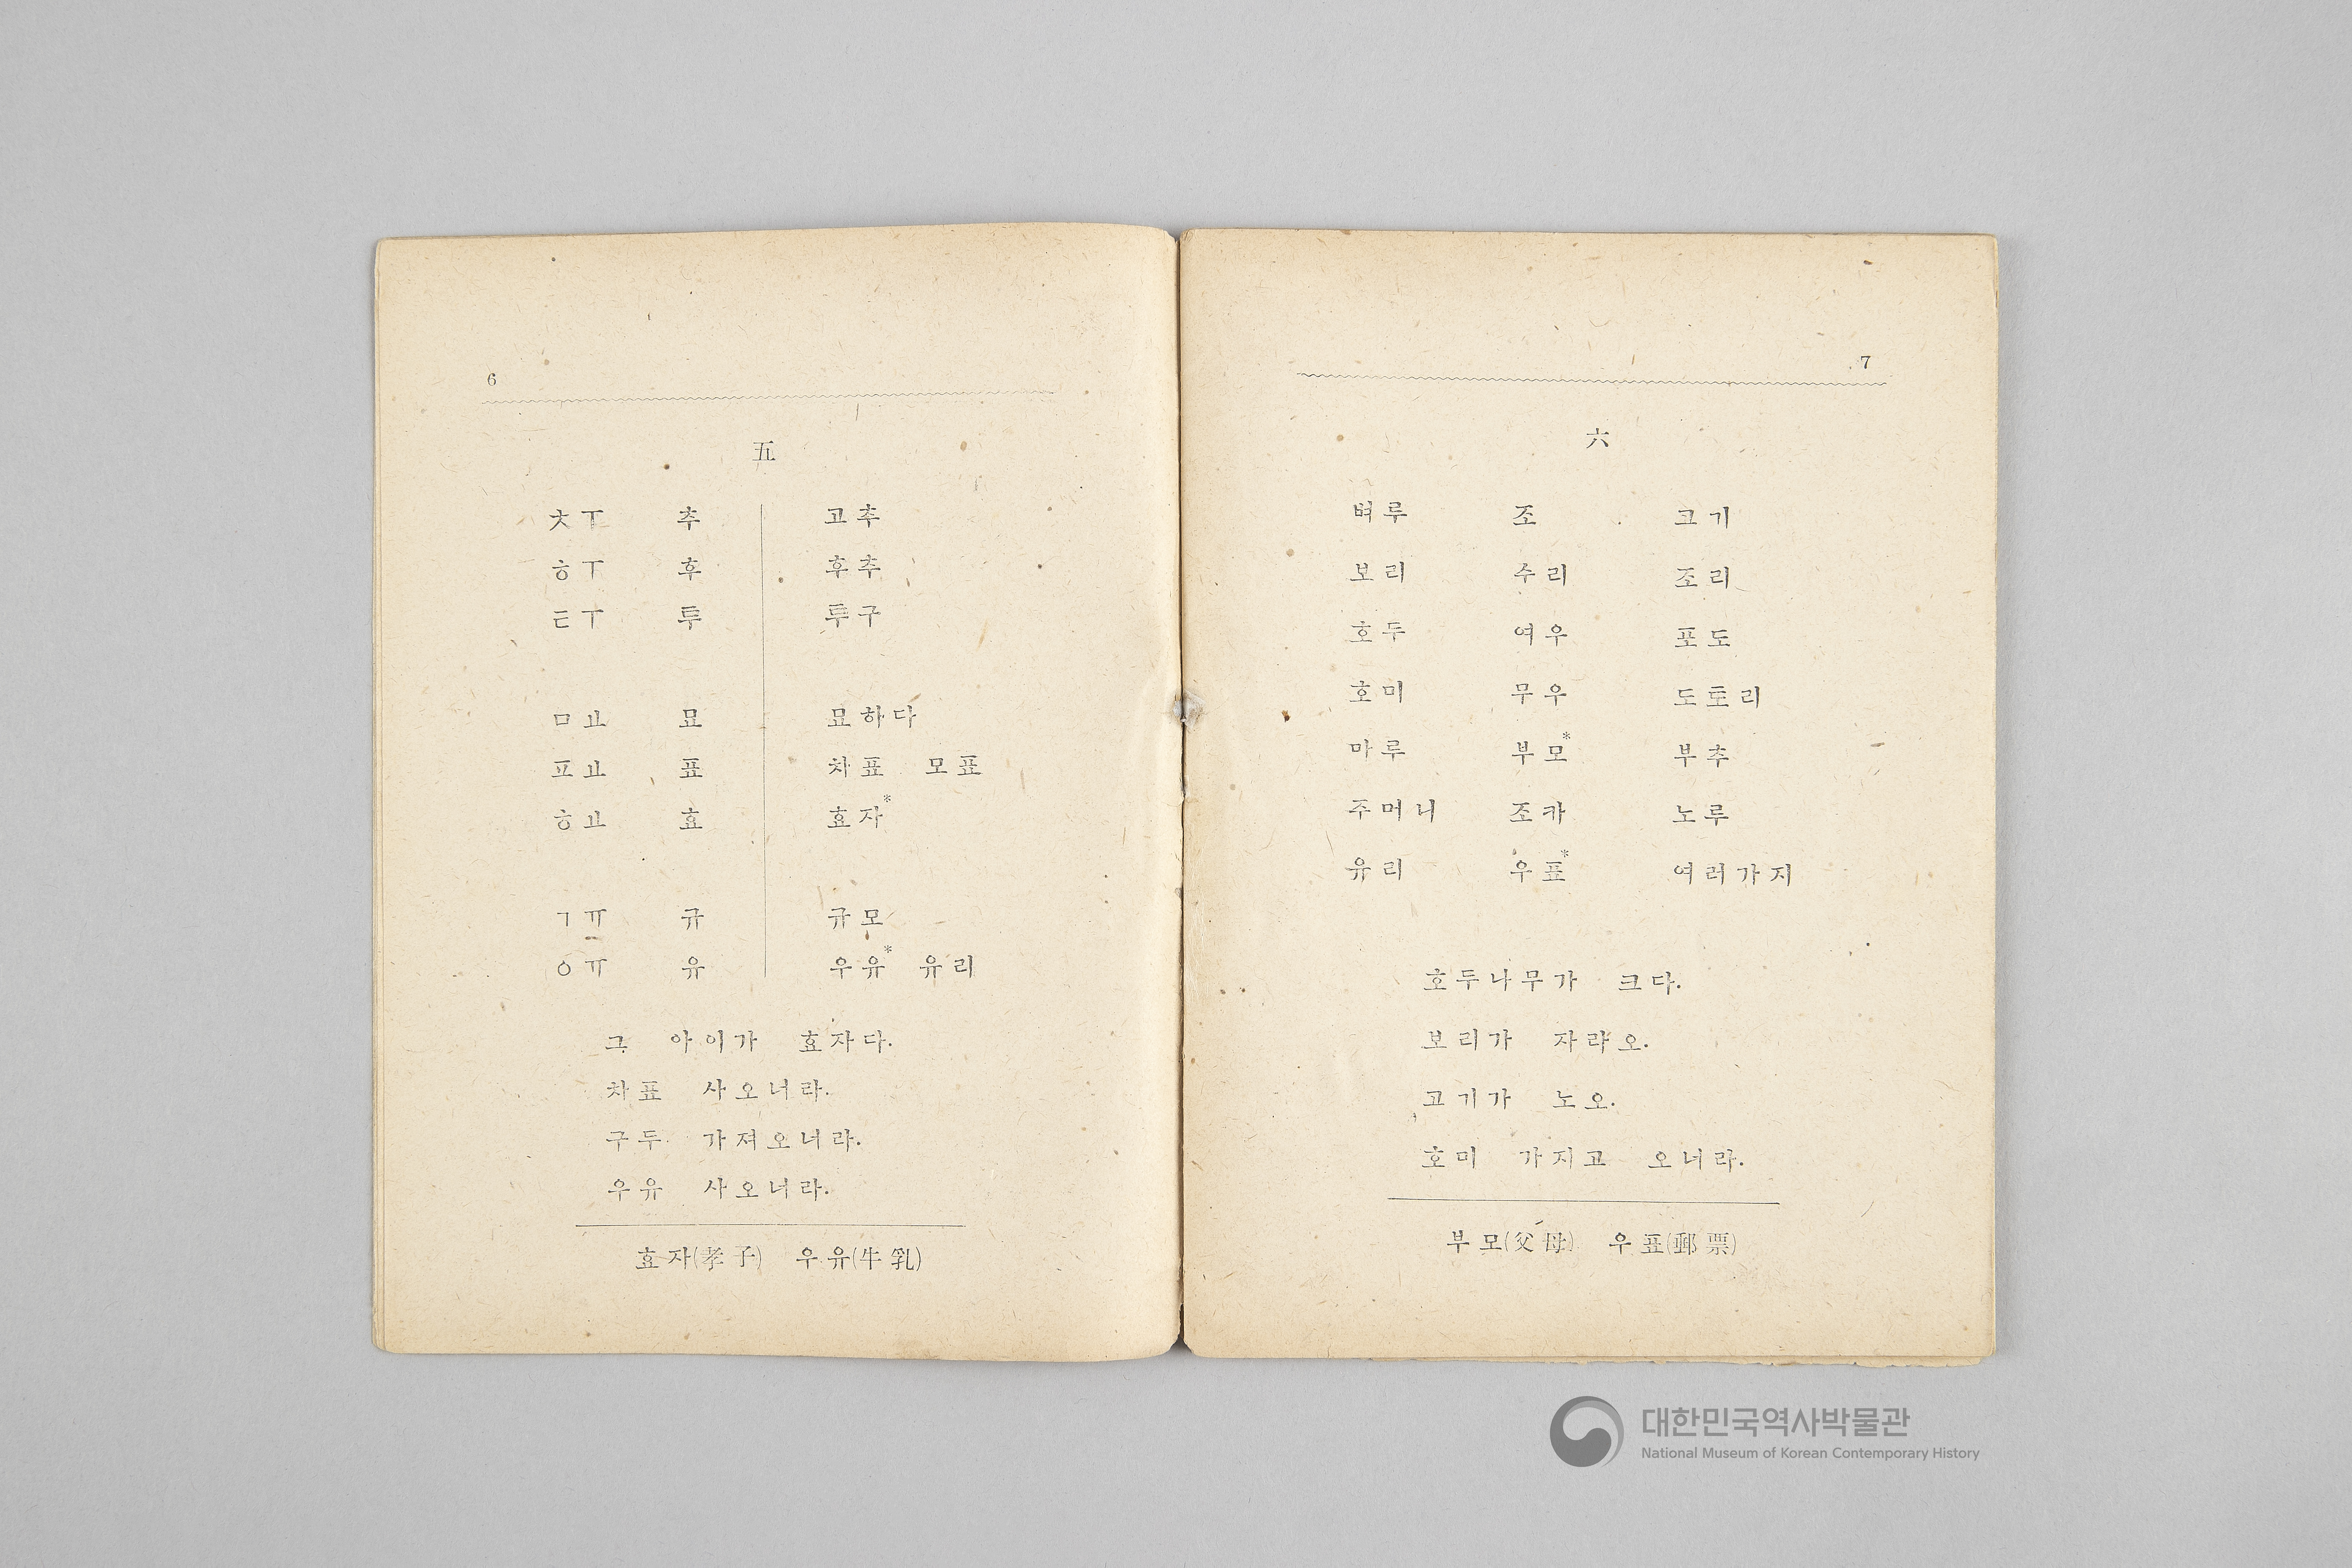 6
五
ㅊㅜ 추 고추
ㅎㅜ 후 후추
ㅌㅜ 투 투구
ㅁㅛ 묘 묘하다
ㅍㅛ 표 차표 모표
ㅎㅛ 효 효자*
ㄱㅠ 규 규모
ㅇㅠ 유 우유* 유리
그 아이가 효자다.
차표 사오너라.
구두 가져오너라.
우유 사오너라.
효자(孝子) 우유(牛乳)
7
六
벼루 조 고기
보리 수리 조리
호두 여우 포도
호미 무우 도토리
마루 부모* 부추
주머니 조카 노루
유리 우표* 여러가지
호두나무가 크다.
보리가 자라오.
고기가 노오.
호미 가지고 오너라.
부모(父母) 우표(郵票)
대한민국역사박물관
National Museum of Korean Contemporary History